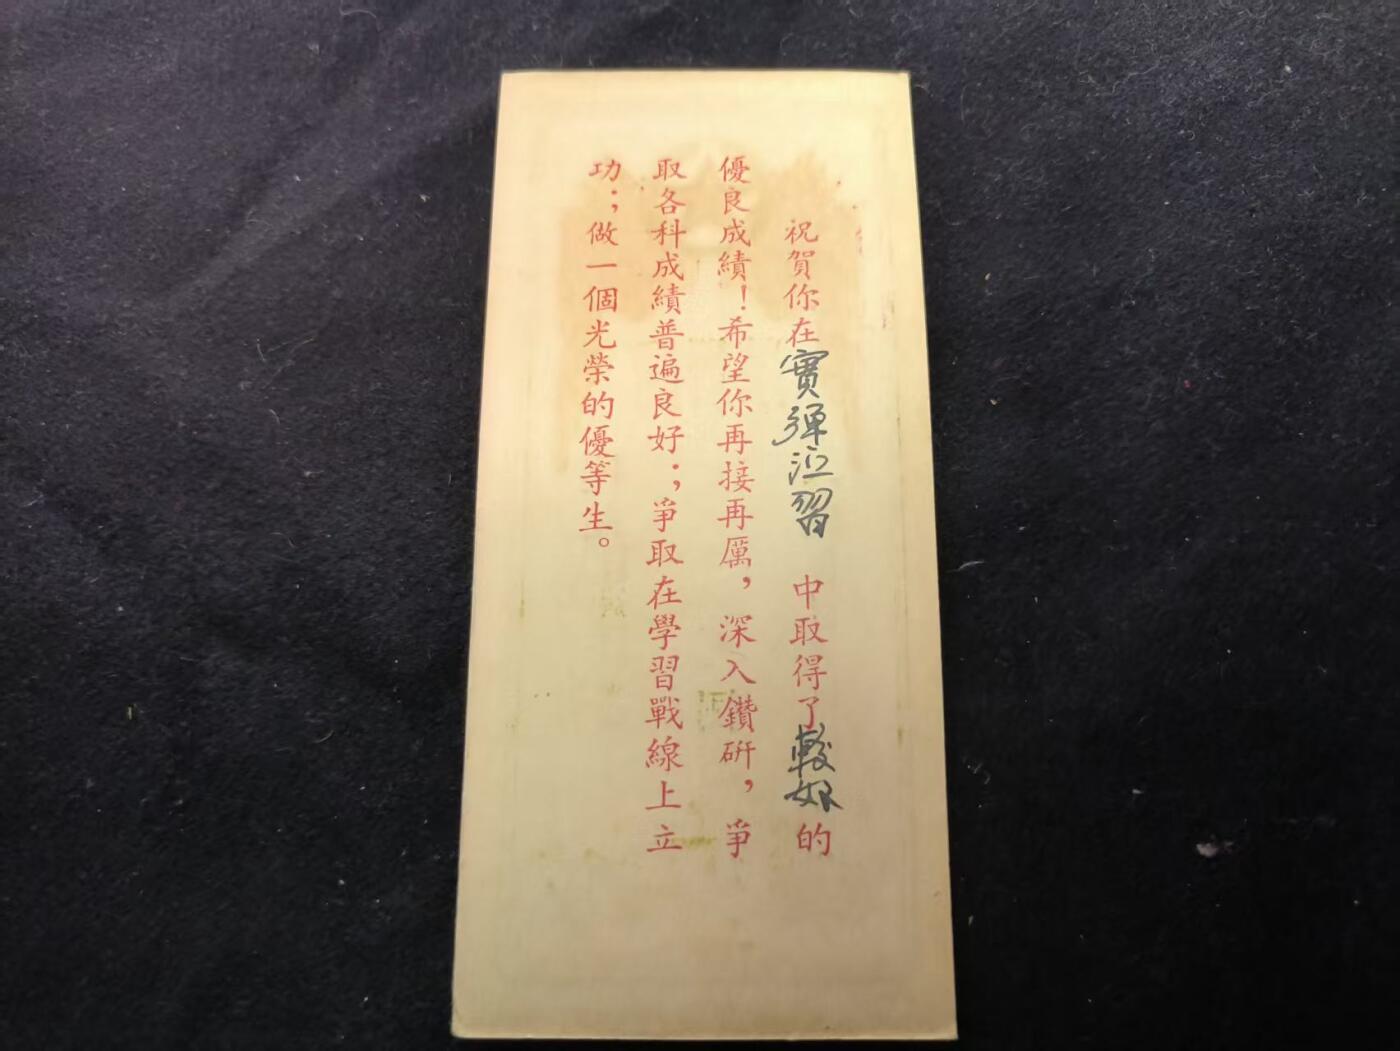 祝賀你在實彈演習 中取得了較好的
優良成績！希望你再接再厲，深入鑽研，爭
取各科成績普遍良好；爭取在學習戰線上立
功；做一個光榮的優等生。